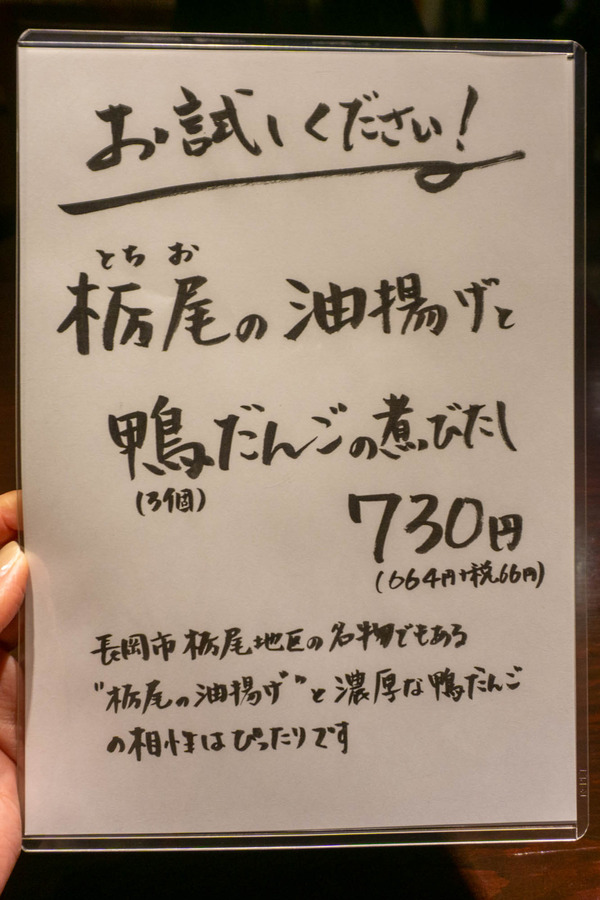 お試しください!
とちお
栃尾の油揚げと
鴨だんごの煮びたし
(3個)
730円
(664円+税66円)
長岡市栃尾地区の名物でもある
"栃尾の油揚げ"と濃厚な鴨だんご
の相性はぴったりです